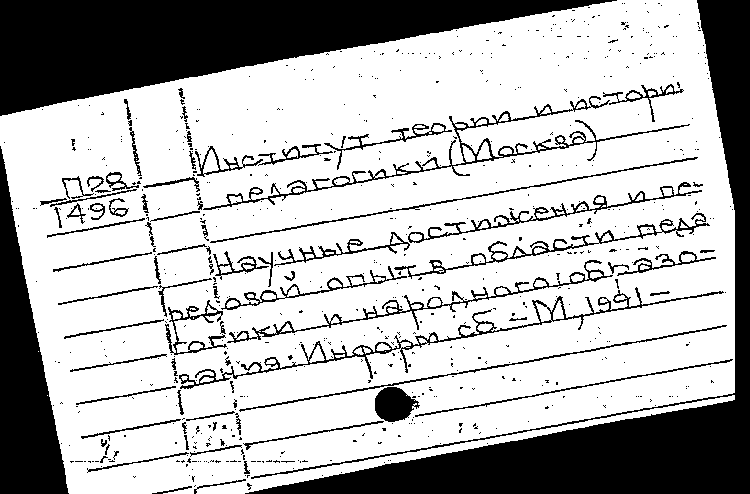 П28
1496
Институт теории и истории
педагогики (Москва)
Научные достижения и пе-
редовой опыт в области педа
гогики и народного образо-
вания: Информ. сб. - М, 1991 -